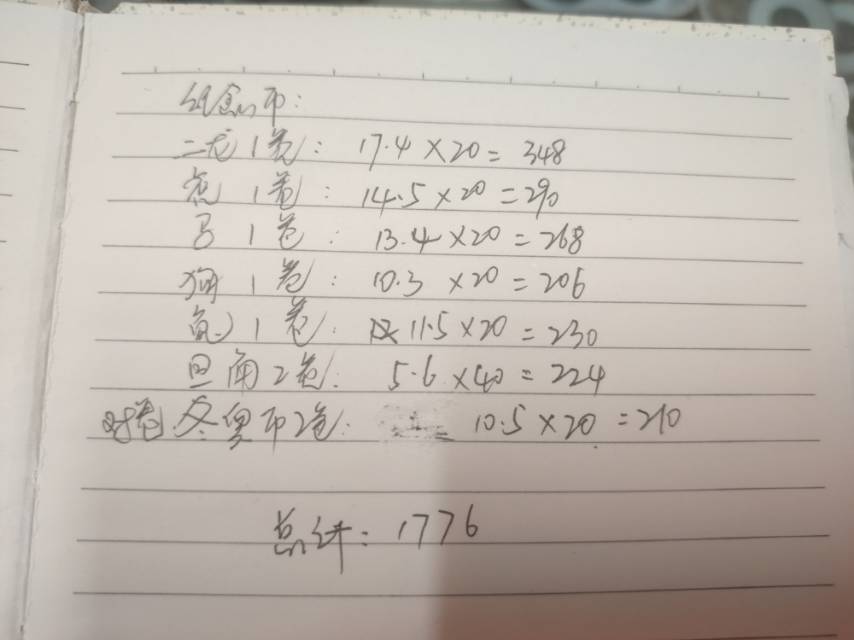 纪念币:
二龙1卷: 17.4×20=348
虎1卷: 14.5×20=290
马1卷: 13.4×20=268
狗1卷: 10.3×20=206
1卷: 11.5×20=230
角2卷: 5.6×40=224
冬奥币2卷: 10.5×20=210
总计: 1776